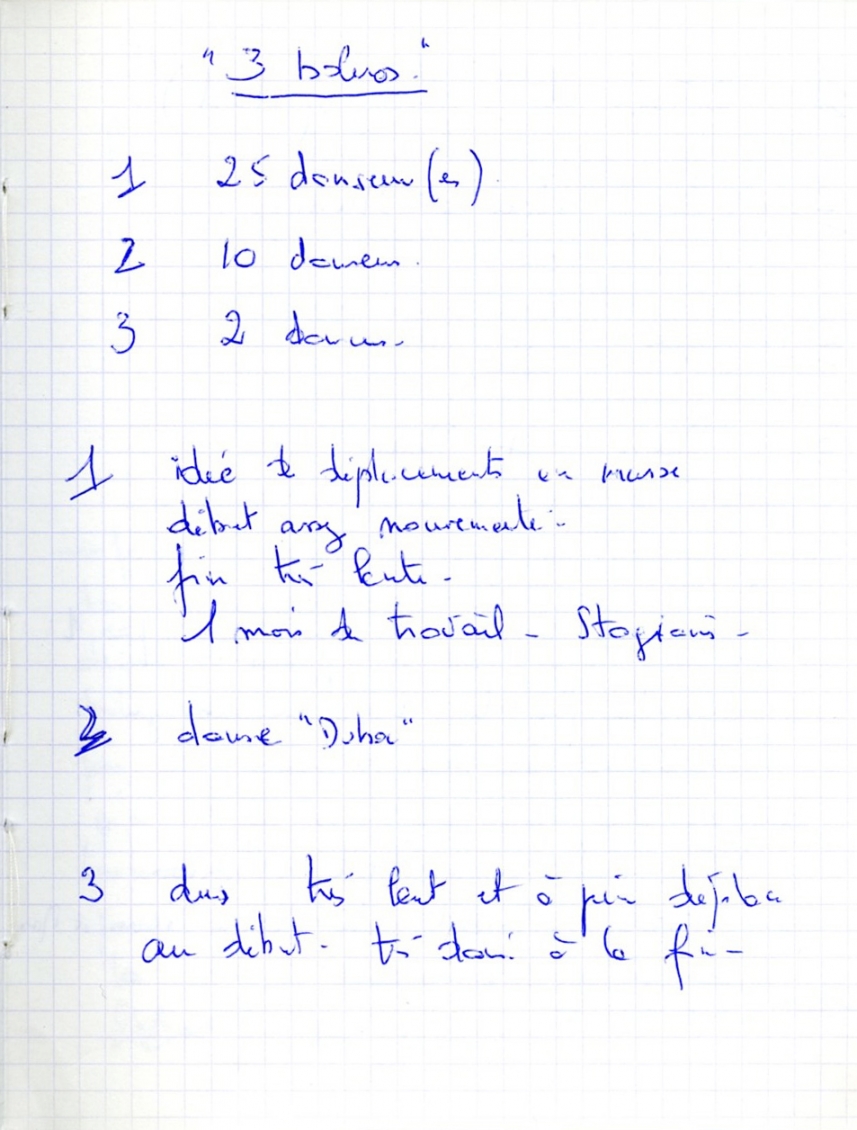 "3 boleros."
1 25 danseurs (es)
2 10 danseurs.
3 2 danseurs.
1 idée de déplacements en masse
début assez mouvementé.
fin très lente.
1 mois de travail - Stagiaires -
2 danse "Duba"
3 duos très lent et à peine
au début. très dansé à la fin -